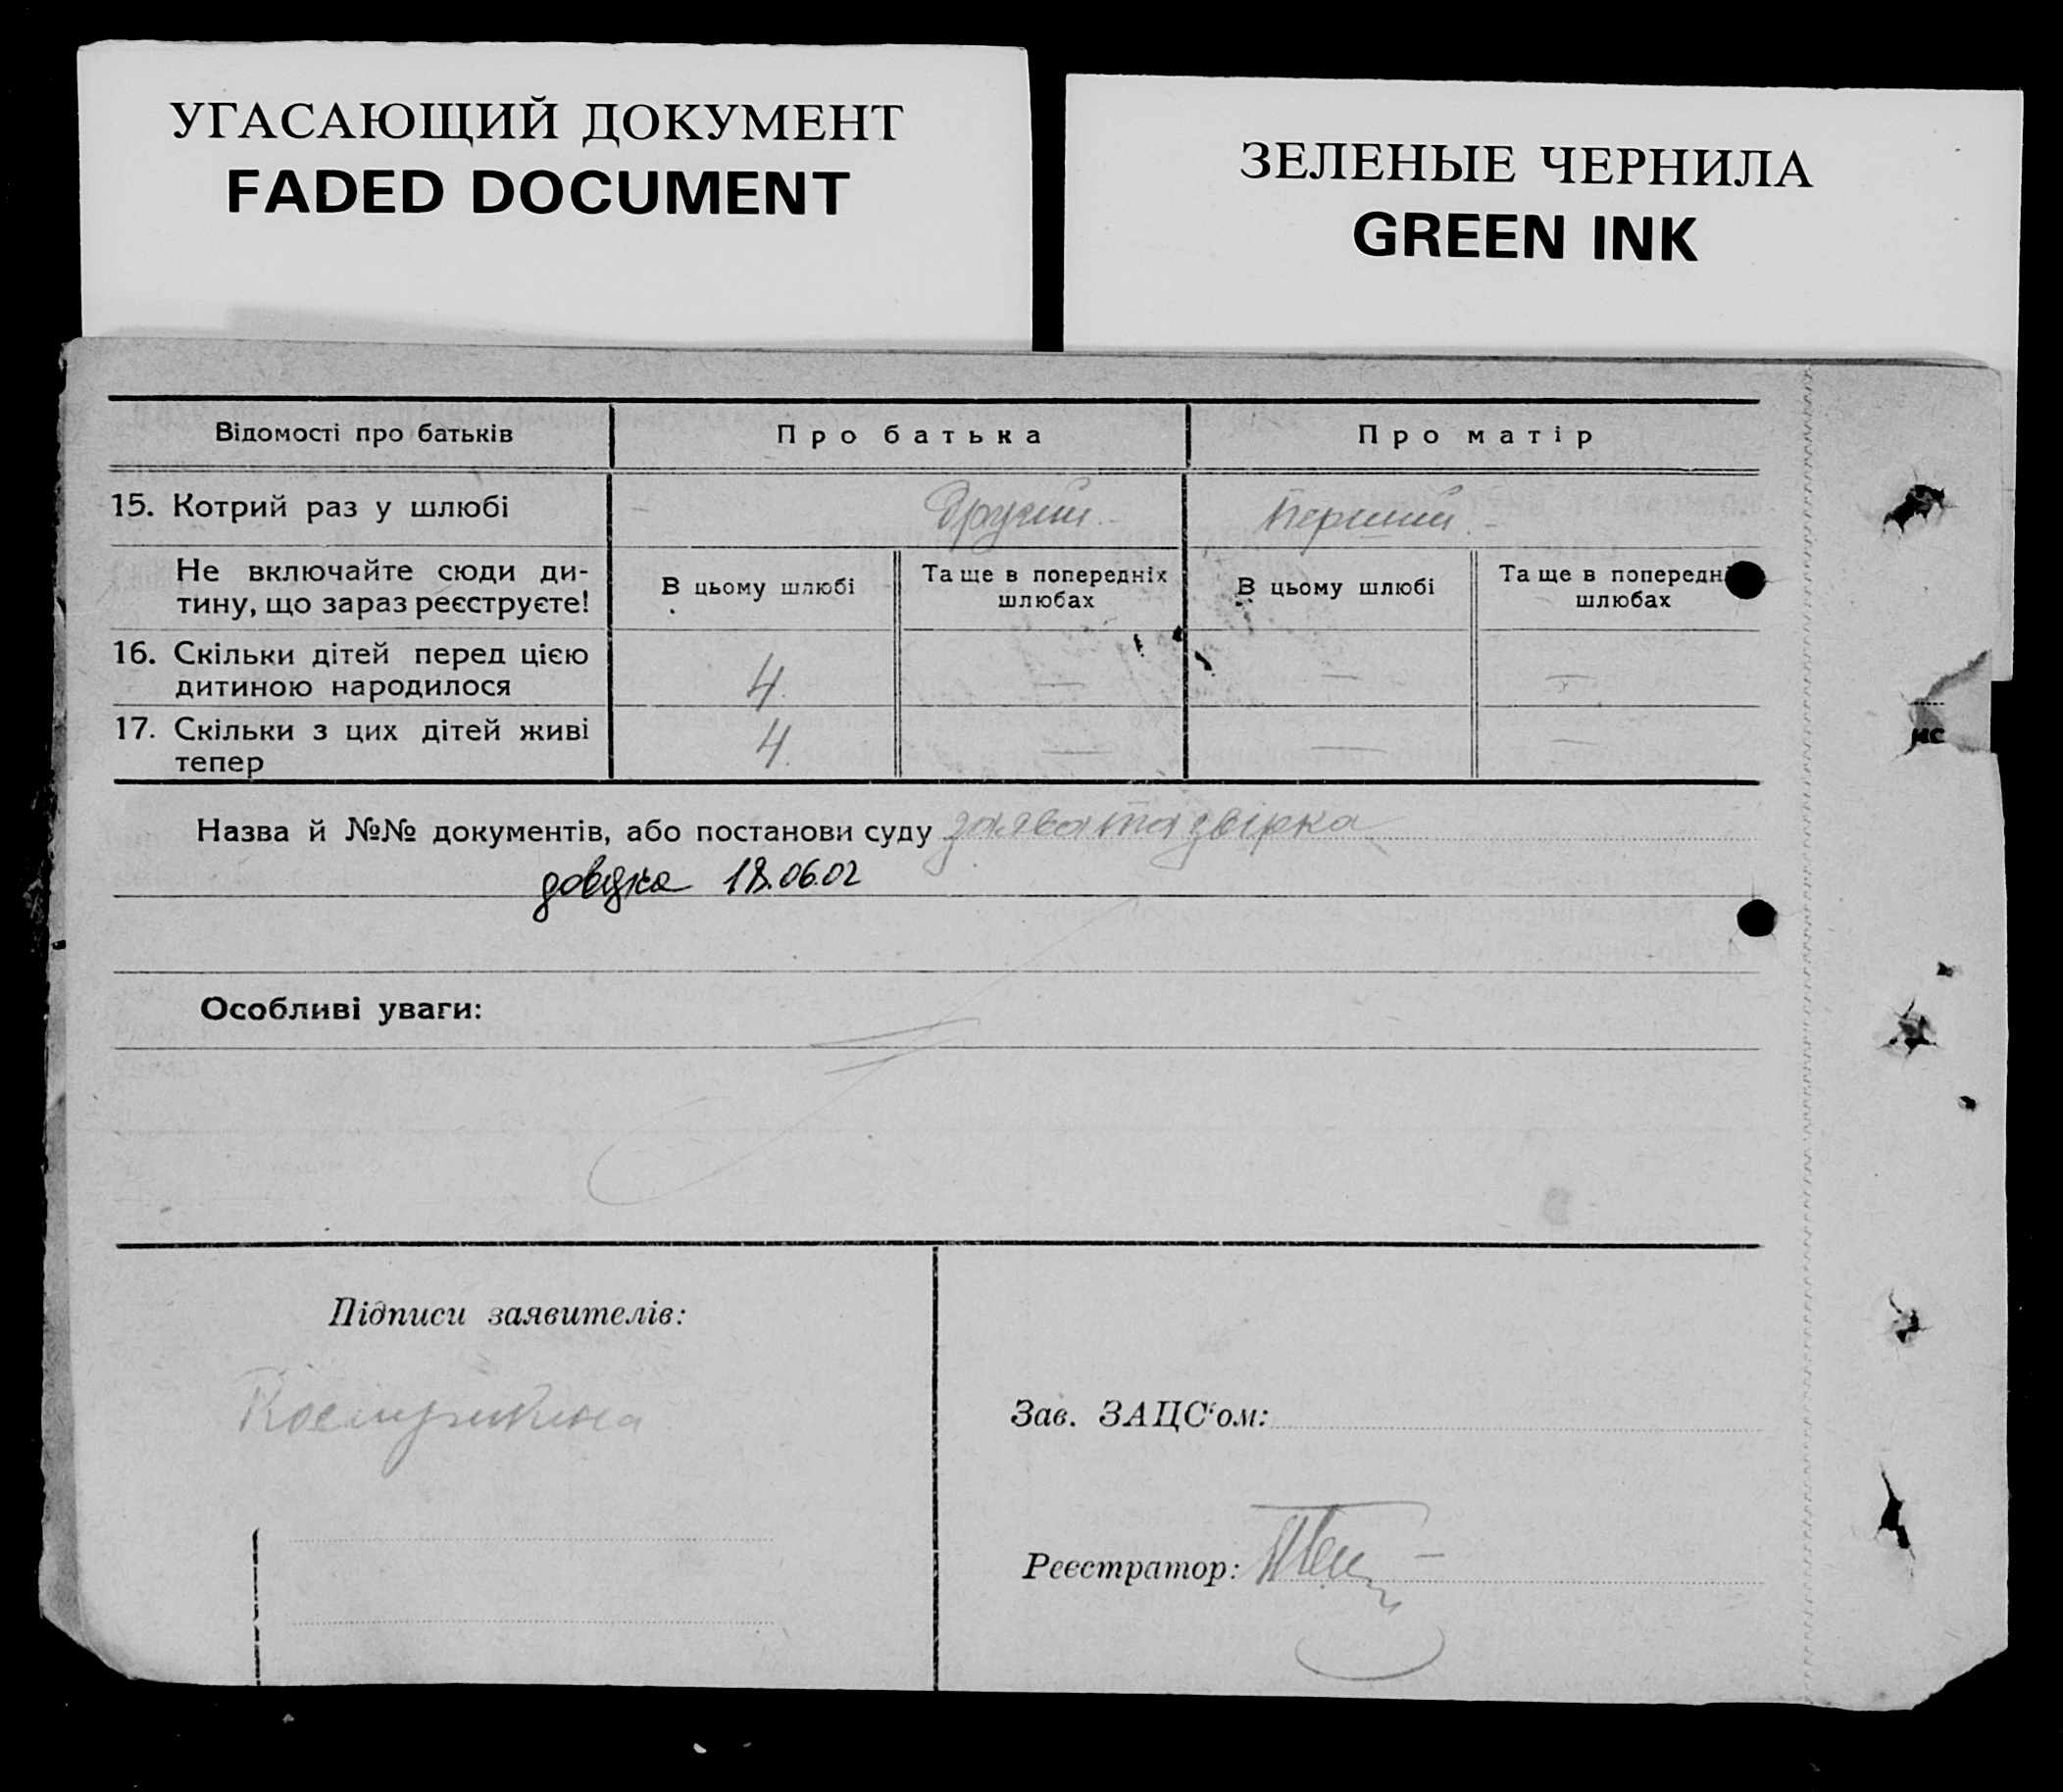 УГАСАЮЩИЙ ДОКУМЕНТ
FADED DOCUMENT
ЗЕЛЕНЫЕ ЧЕРНИЛА
GREEN INK
Відомості про батьків Про батька Про матір
15. Котрий раз у шлюбі Другий Перший
Не включайте сюди ди-
тину, що зараз реєструєте!
В цьому шлюбі
Та ще в попередніх
шлюбах
В цьому шлюбі
Та ще в попередн
шлюбах
16. Скільки дітей перед цією
дитиною народилося 4. — — —
17. Скільки з цих дітей живі
тепер 4. — — —
Назва й №№ документів, або постанови суду заява та звірка
довідка 18.06.02
Особливі уваги:
Підписи заявителів:
Зав. ЗАЦС‘ом:
Реєстратор: